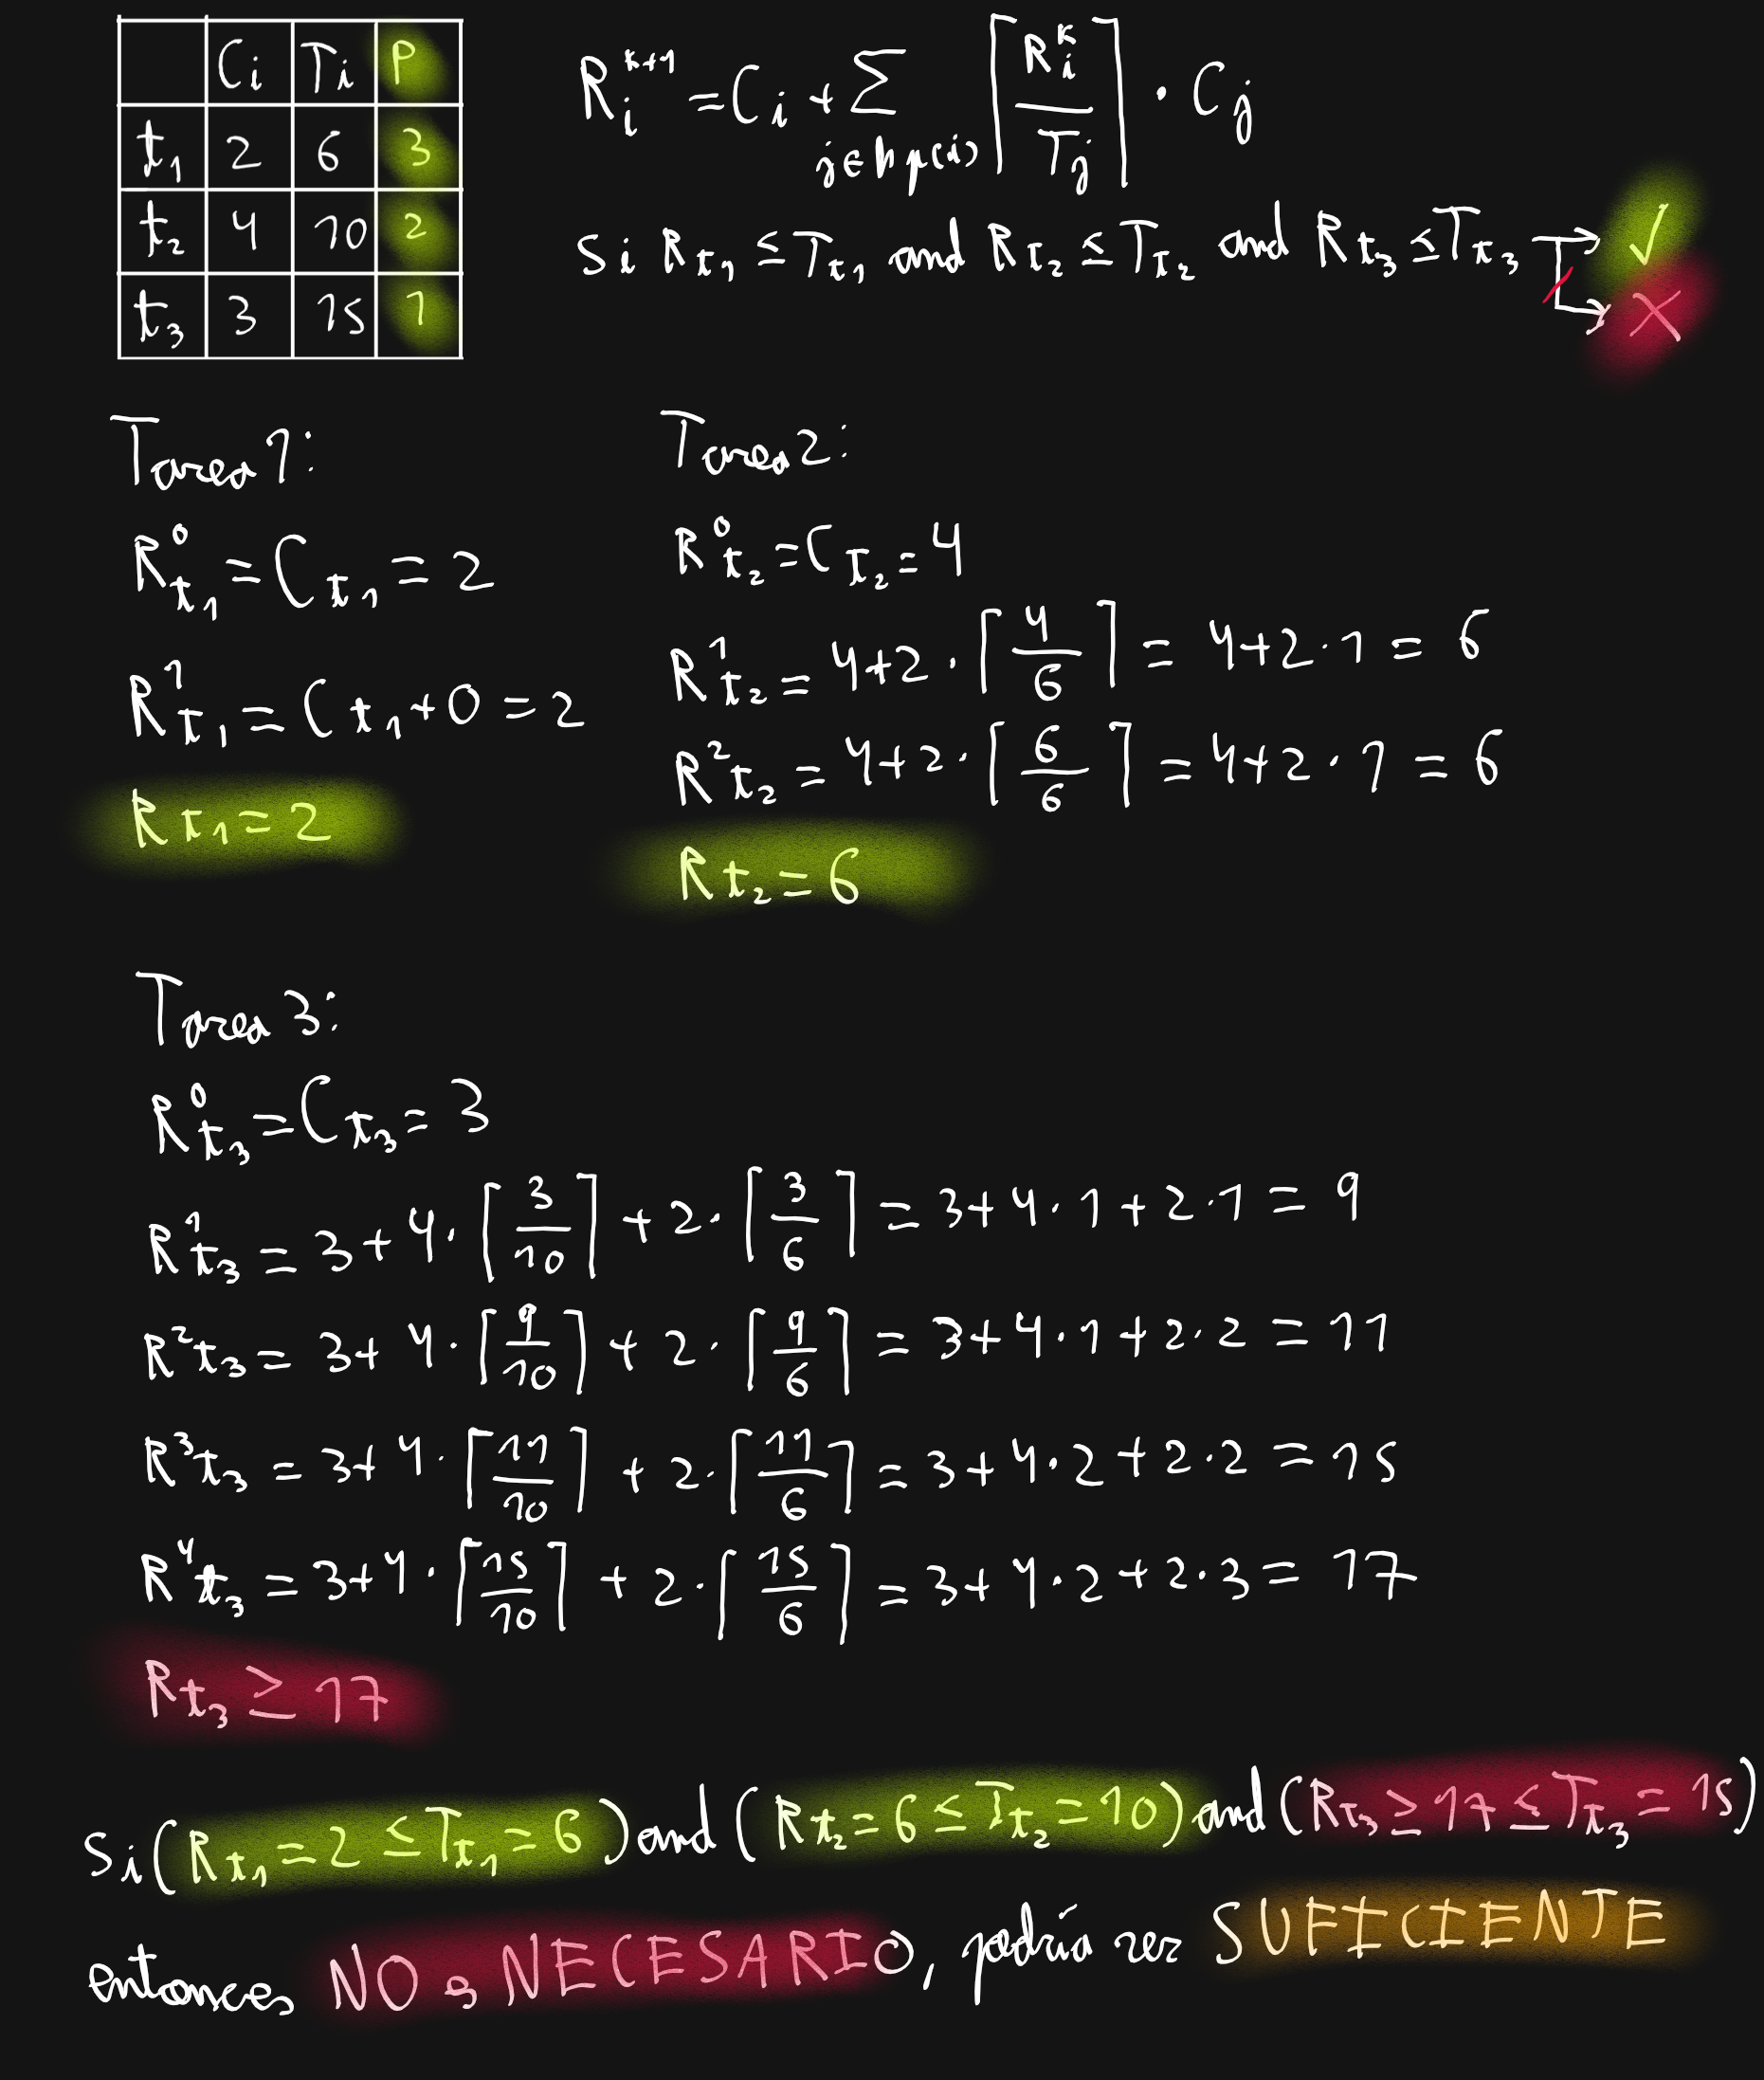 Ci Ti P
t₁ 2 6 3
t₂ 4 10 2
t₃ 3 15 1
Rᵢᵏ⁺¹ = Cᵢ + Σ_{j∈hp(i)} ⌈Rᵢᵏ / Tⱼ⌉ · Cⱼ
Si R_t₁ ≤ T_t₁ and R_t₂ ≤ T_t₂ and R_t₃ ≤ T_t₃ → ✓
↳ X
Tarea 1:
R⁰_t₁ = C_t₁ = 2
R¹_t₁ = C_t₁ + 0 = 2
R_t₁ = 2
Tarea 2:
R⁰_t₂ = C_t₂ = 4
R¹_t₂ = 4+2·⌈4/6⌉ = 4+2·1 = 6
R²_t₂ = 4+2·⌈6/6⌉ = 4+2·1 = 6
R_t₂ = 6
Tarea 3:
R⁰_t₃ = C_t₃ = 3
R¹_t₃ = 3+4·⌈3/10⌉ + 2·⌈3/6⌉ = 3+4·1+2·1 = 9
R²_t₃ = 3+4·⌈9/10⌉ + 2·⌈9/6⌉ = 3+4·1+2·2 = 11
R³_t₃ = 3+4·⌈11/10⌉ + 2·⌈11/6⌉ = 3+4·2+2·2 = 15
R⁴_t₃ = 3+4·⌈15/10⌉ + 2·⌈15/6⌉ = 3+4·2+2·3 = 17
R_t₃ ≥ 17
Si (R_t₁ = 2 ≤ T_t₁ = 6) and (R_t₂ = 6 ≤ T_t₂ = 10) and (R_t₃ ≥ 17 ≤ T_t₃ = 15)
entonces NO es NECESARIO, podría ser SUFICIENTE